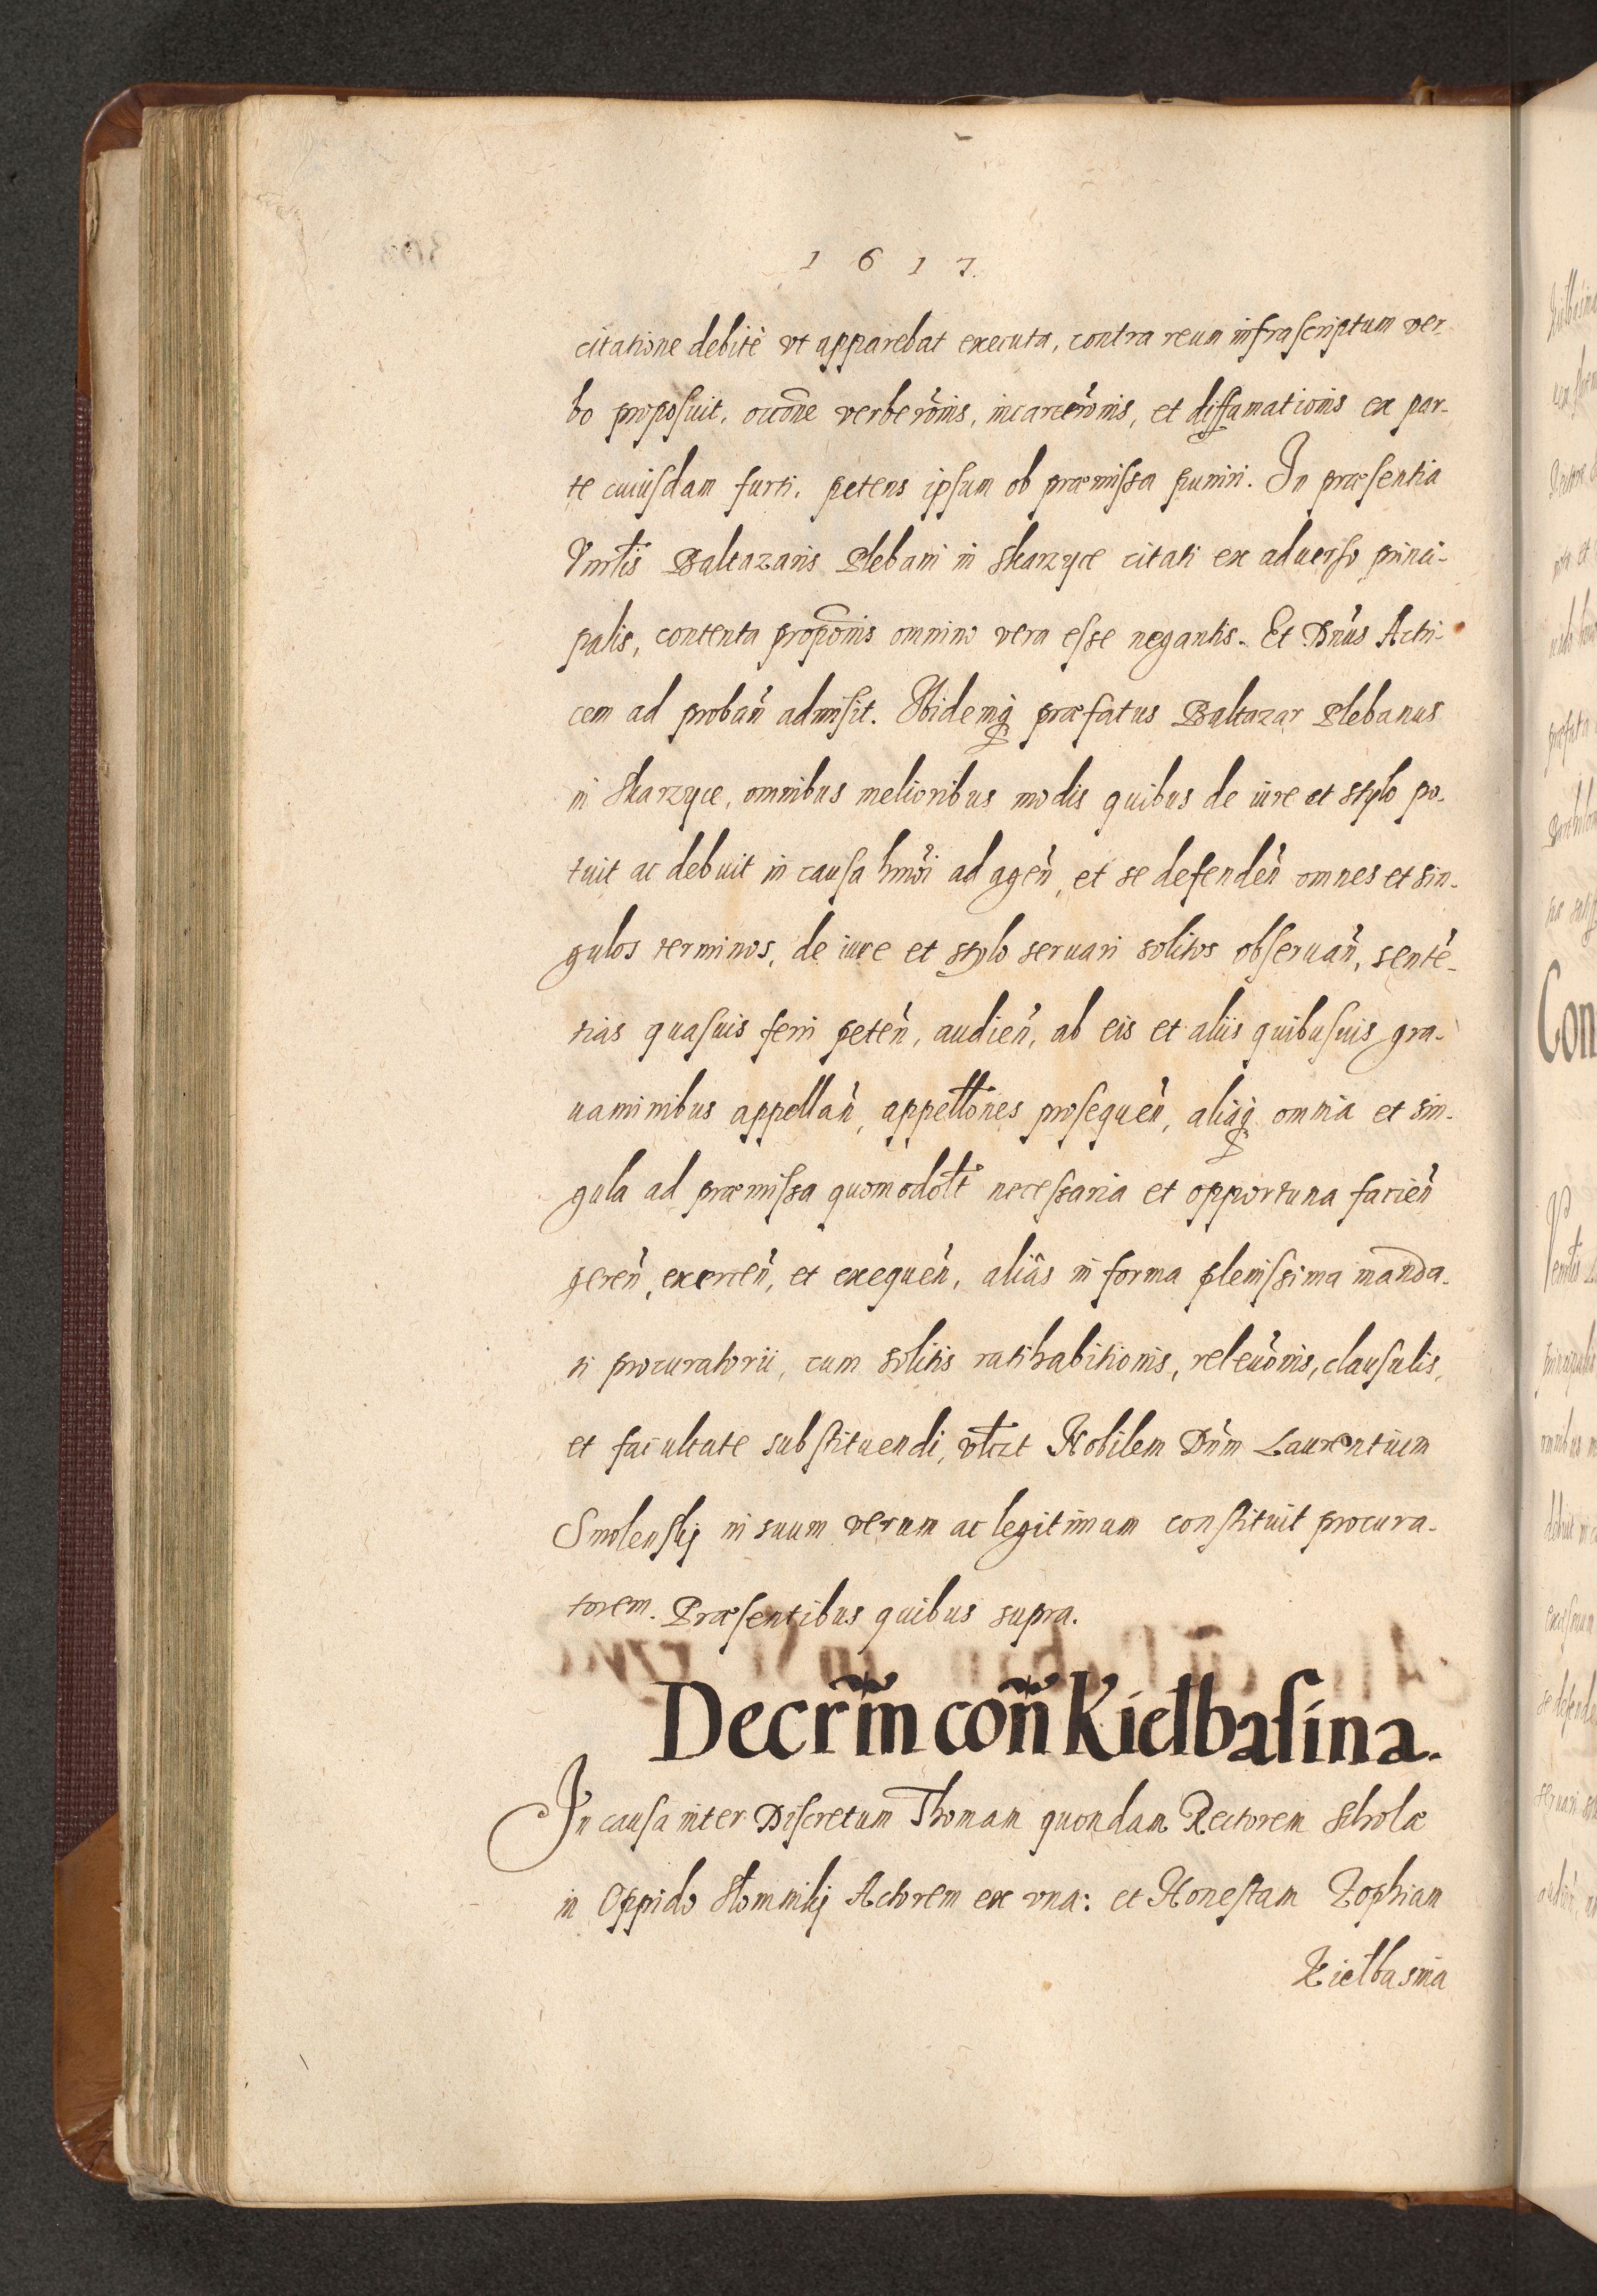 1617.
citatione debitè vt apparebat executa, contra reum infrascriptum ver-
bo proposuit, occõne verberõnis, incarcerõnis, et diffamationis ex par-
te cuiusdam furti, petens ipsum ob præmissa puniri. In præsentia
Vnrl̃is Baltazaris Plebani in Skarzyce citati ex aduerso princi-
palis, contenta propõnis omnino vera esse negantis. Et Dñus Actri-
cem ad probañ admisit. Ibidemq; præfatus Baltazar Plebanus
in Skarzyce, omnibus melioribus modis quibus de iure et stylo po-
tuit ac debuit in causa hmõi ad ageñ, et se defendeñ omnes et sin-
gulos terminos, de iure et stylo seruari solitos obseruañ, sentẽ-
tias quasuis ferri peteñ, audieñ, ab eis et aliis quibusuis gra-
uaminibus appellañ, appelłones prosequeñ, aliaq; omnia et sin-
gula ad præmissa quomodol̃t necessaria et opportuna facieñ
gereñ, exerceñ, et exequeñ, aliâs in forma plenissima manda-
ti procuratorii, cum solitis ratihabitionis, releuõnis, clausulis,
et facultate substituendi, vtl̃zt Nobilem Dñm Laurentium
Smolenskj in suum verum ac legitimum constituit procura-
torem. Præsentibus quibus supra.
Decrm̃ coñ Kiełbasina.
In causa inter Discretum Thomam quondam Rectorem Scholæ
in Oppido Słomnikj Actorem ex vna: et Honestam Zophiam
Kiełbasina